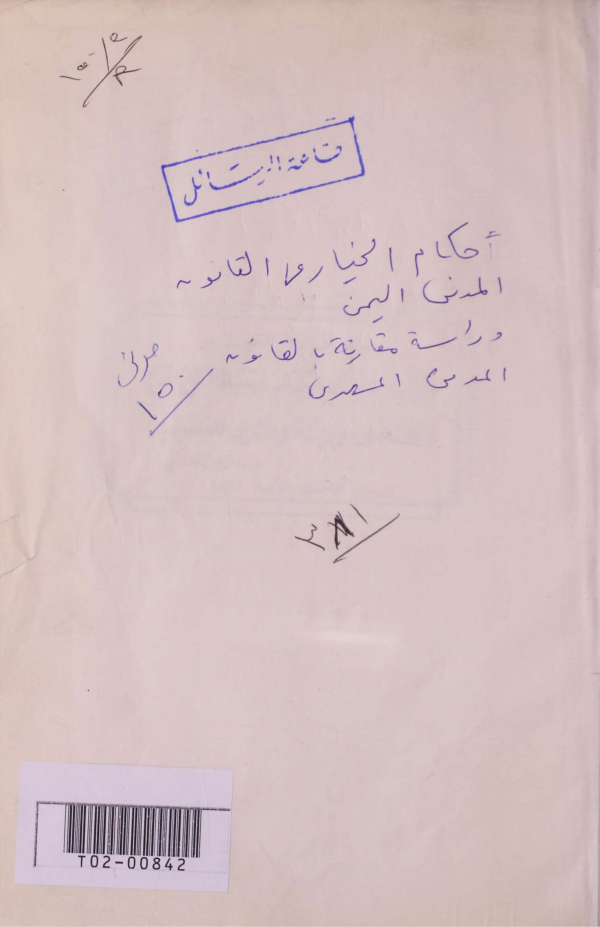 قاعة الرسائل
أحكام الخيار في القانون
المدني اليمني
دراسة مقارنة بالقانون
المدني المصري
مدني
١٥٠
T02-00842